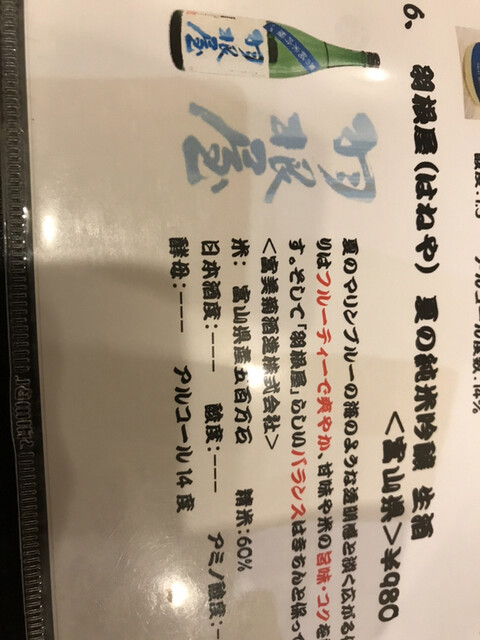 度数:14%
6、 羽根屋(はねや) 夏の純米吟醸 生酒
<富山県>¥980
羽根屋
羽根屋
夏のマリンブルーの海のような透明感と淡く広がる
りはフルーティーで爽やか、甘味や米の旨味・コクを
す。そして「羽根屋」らしいバランスはきちんと保って
<富美菊酒造株式会社>
旅: 富山県産五百万石 精米:60%
日本酒度:--- 酸度:--- アミノ酸度:-
酵母:--- アルコール14度